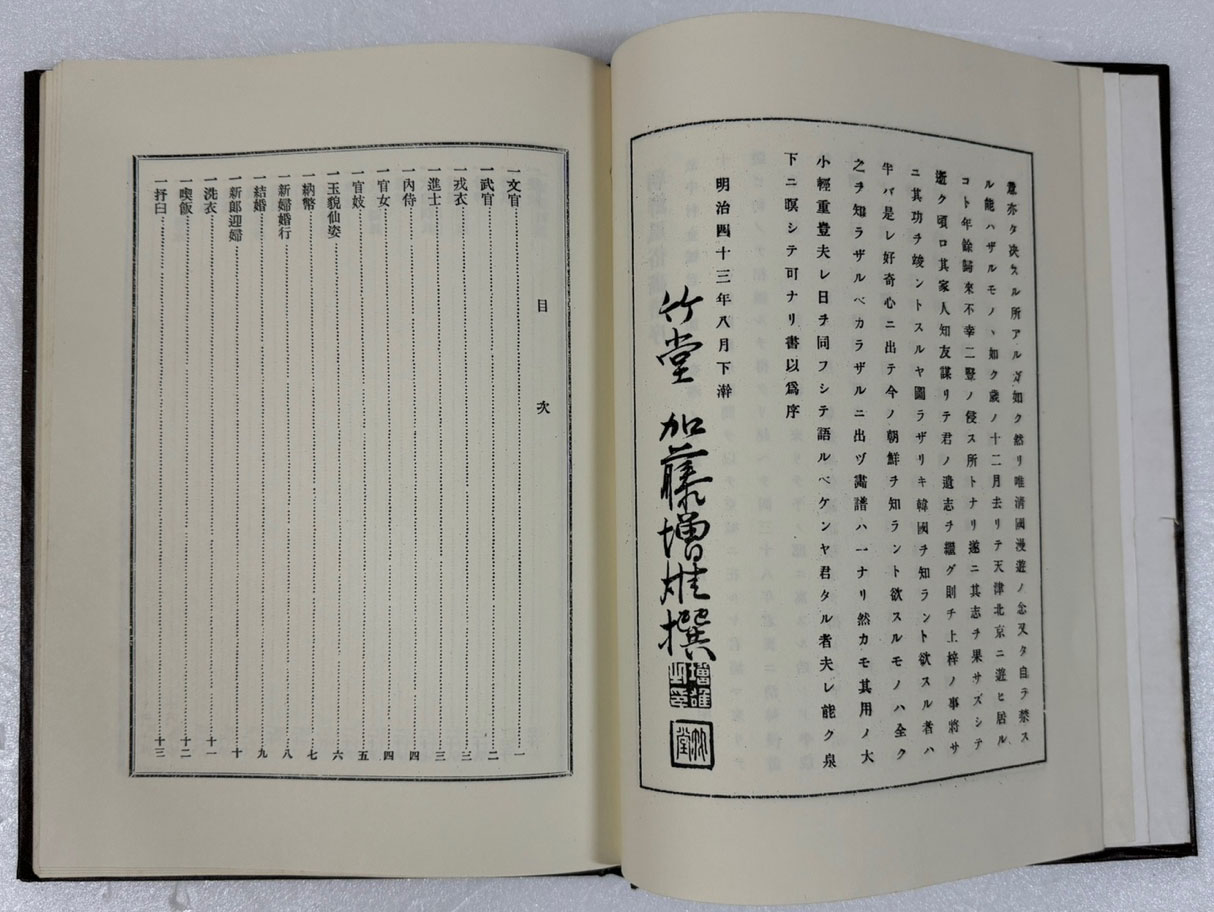 意亦タ決スル所アルガ如ク然リ唯清國漫遊ノ念又タ自ラ禁ス
ル能ハザルモノヽ如ク歳ノ十二月去リテ天津北京ニ遊ヒ居ル
コト年餘歸來不幸二豎ノ侵ス所トナリ遂ニ其志ヲ果サズシテ
逝ク頃ロ其家人知友謀リテ君ノ遺志ヲ繼グ則チ上梓ノ事將サ
ニ其功ヲ竣ントスルヤ圖ラザリキ韓國ヲ知ラント欲スル者ハ
半バ是レ好奇心ニ出テ今ノ朝鮮ヲ知ラント欲スルモノハ全ク
之ヲ知ラザルベカラザルニ出ヅ畵譜ハ一ナリ然カモ其用ノ大
小輕重豊夫レ日ヲ同フシテ語ルベケンヤ君タル者夫レ能ク泉
下ニ暝シテ可ナリ書以爲序
明治四十三年八月下澣
竹堂 加藤增雄撰
增雄之印
竹堂
目次
一文官 一
一武官 二
一戎衣 三
一進士 三
一內侍 四
一官女 四
一官妓 五
一玉貌仙姿 六
一納幣 七
一新婦婚行 八
一結婚 九
一新郎迎婦 十
一洗衣 十一
一喫飯 十二
一抒臼 十三